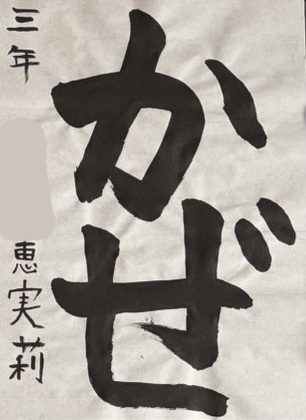 かぜ
三年 恵実莉